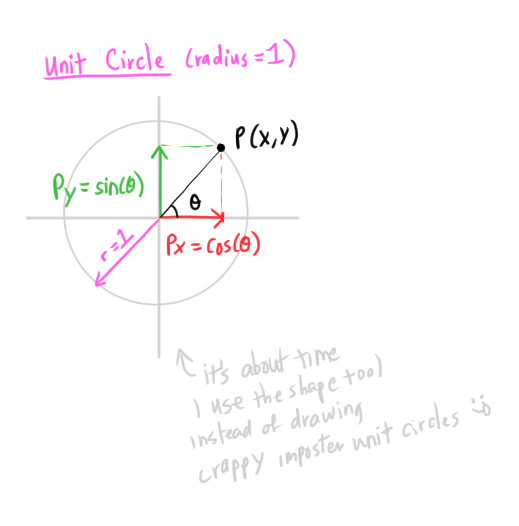 Unit Circle (radius=1)
P(x,y)
Py=sin(θ)
θ
r=1
Px=cos(θ)
it's about time
I use the shape tool
instead of drawing
crappy imposter unit circles